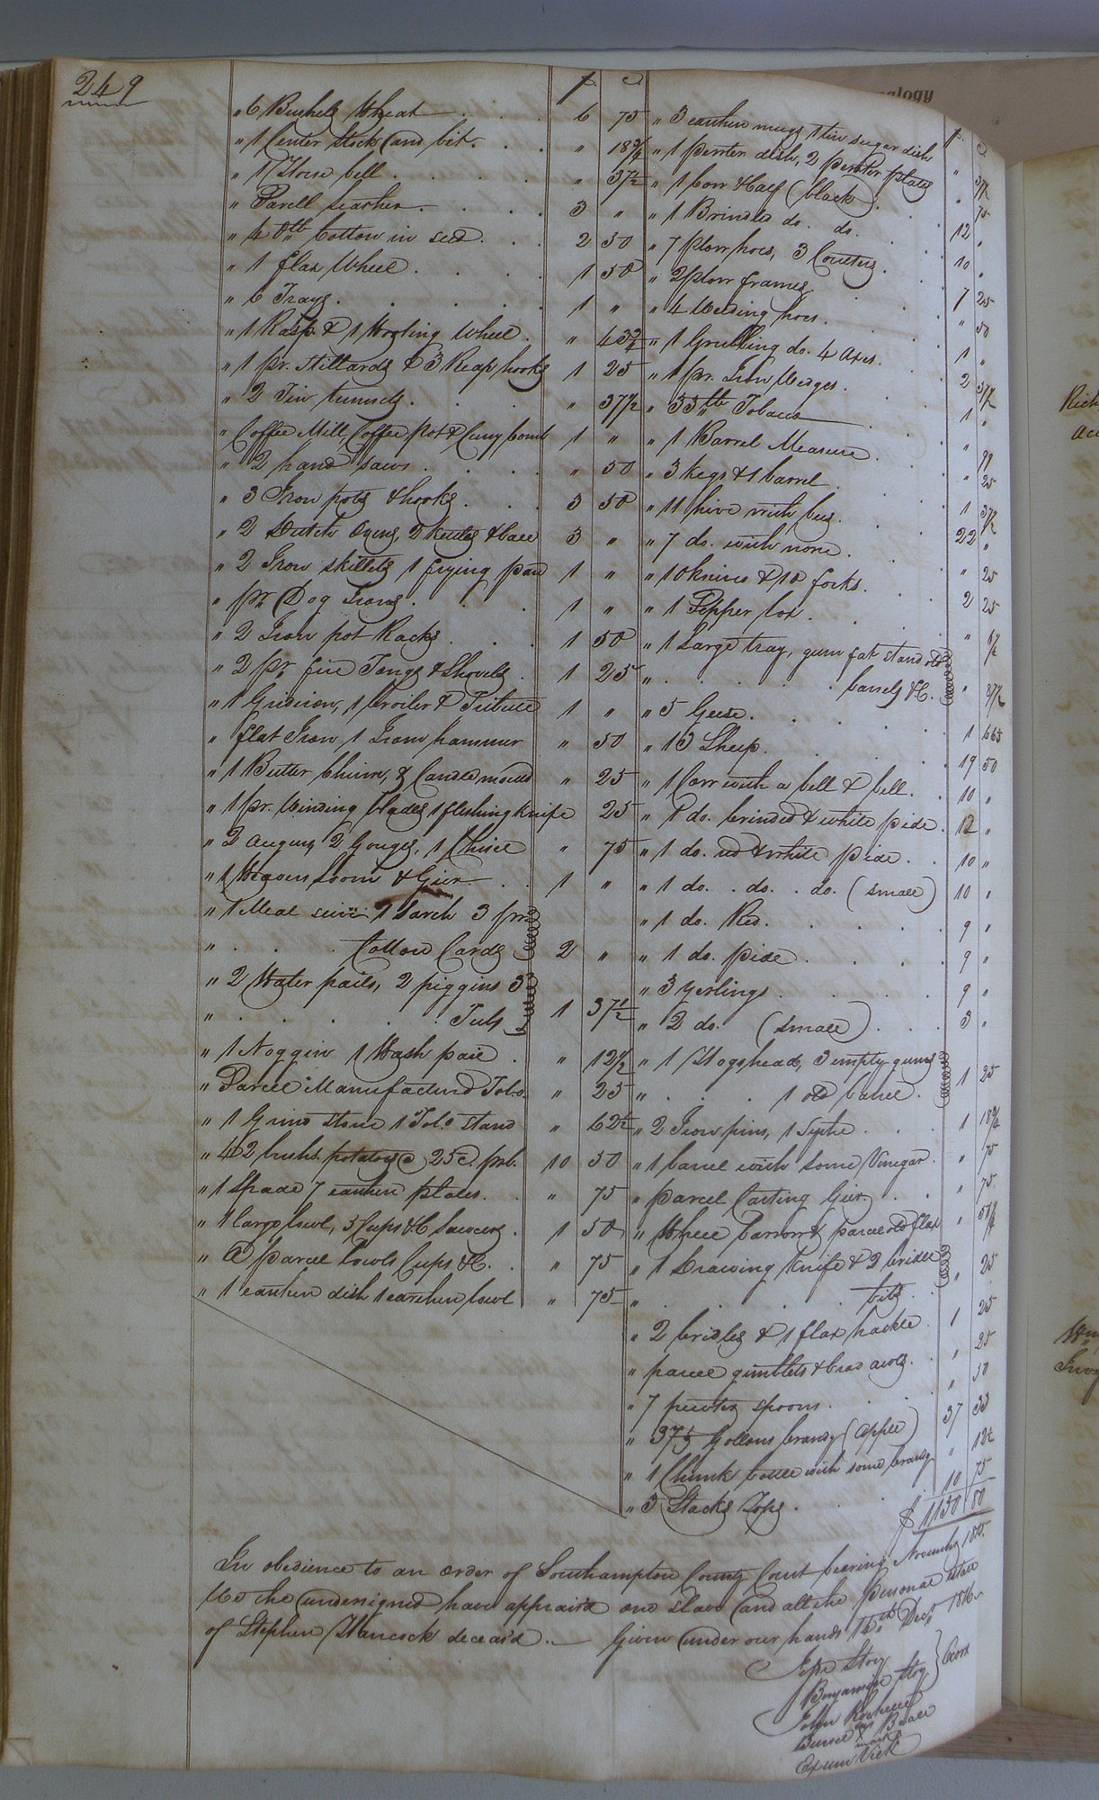 249
$ C
" 6 Bushels Wheat . . . 6 75
" 1 Center Stock and bit . . . " 18¾
" 1 Horse bell . . . . " 37½
" Parcll Leather . . . . 3 "
" 40 lb Cotton in seed . . . 2 50
" 1 flax Wheel . . . . 1 50
" 6 Trays . . . . . 1 "
" 1 Rasp & 1 Wooling Wheel . " 43¾
" 1 pr. Stillards & 3 Reap hooks 1 25
" 2 Tin tunnels . . . . " 37½
" Coffee Mill, Coffee pot & Curry comb 1 "
" 2 hand saws . . . . " 50
" 3 Iron pots & hooks . . . 3 50
" 2 Dutch Ovens, 2 kettles & bale 3 "
" 2 Iron skillets 1 frying pan 1 "
" pr. Dog Irons . . . 1 "
" 2 Iron pot Racks . . . 1 50
" 2 pr. fire Tongs & Shovels . 1 25
" 1 Gridiron, 1 broiler & 1 "
" flat Iron, 1 Iron hammer " 50
" 1 Butter Churn, & Candle moulds " 25
" 1 pr. Winding blades 1 fleshing knife 25
" 2 augurs 2 Gouges, 1 Chisel " 75
" 1 Weavers Loom & Gier . . 1 "
" 1 Meal seive 1 Sarch 3 pr.
" . . . Cotton Cards 2 "
" 2 Water pails, 2 piggins 3
" . . . . . Tubs 1 37½
" 1 Noggin 1 Wash pail . " 12½
" Parcel Manufactured Tobo. " 25
" 1 Grind stone 1 Tobo stand " 62½
" 42 bushs. potatoes @ 25c. prb. 10 50
" 1 Spade 7 earthen plates . . " 75
" 1 large bowl, 5 Cups & 6 Saucers . 1 50
" A parcel bowls Cups &C. . " 75
" 1 earthen dish 1 earthen bowl " 75
$ C
" 3 earthen mugs 1 tin sugar dish " 37½
" 1 pewter dish, 2 pewter plates " 75
" 1 Cow & Calf (black) . . 12 "
" 1 Brindled do. do. . . 10 "
" 7 plow hoes, 3 Coulters . . 7 25
" 2 plow frames . . " 50
" 4 Weeding hoes . . . 1 "
" 1 Grubbing do. 4 axes . . 2 37½
" 1 pr. Iron Wedges . . . 1 "
" 55 lb Tobacco
" 1 Barrel Measure . . " 25
" 3 kegs & 1 barrel . . 1 37½
" 11 hive with bees . . 22 "
" 7 do. with none . . . " 25
" 10 knives & 10 forks . . 2 25
" 1 Pepper box . . .
" 1 Large tray, gum fat stand old
" . . . . . barrels &C. " 37½
" 5 Geese . . . . 1
" 13 Sheep . . . . 19 50
" 1 Cow with a bell & bell . 10 "
" 1 do. brinded & white pide . 12 "
" 1 do. red & white pide . . 10 "
" 1 do. . do. . do. (small) 10 "
" 1 do. Red . . . . 9 "
" 1 do. pide . . . . 9 "
" 3 yerlings . . . . 9 "
" 2 do. (small) . . . 3 "
" 1 Hogshead, 3 empty gums
" . . . 1 old barrel . 1 25
" 2 Iron pins, 1 Sythe . . . 1 18¾
" 1 barrel with some Vinegar . " 75
" parcel Carting Gier . . " 75
" Wheel barrow & parcel old flax "
" 1 Drawing Knife & 2 bridle
" . . . . . bits . " 25
" 2 bridles & 1 flax hackle . 1 25
" parcel gimblets & brad awls . . " 25
" 7 pewter spoons . . . " 50
" 37⅓ Gollons brandy (apple) 37 33
" 1 Chunk bottle with some brandy " 12½
" 3 Stacks Tops . . . 10 75
$ 1130 80
In obedience to an order of Southampton County Court bearing November
We the undersigned have appraised one slave and all the personal estate
of Stephen Hancock deceas'd .. Given under our hands Decr. 1816
Jesse Story
Benjamin Story
Exors
John Rochelle
Burwell his Beale
mark
Exum Vick
alogy